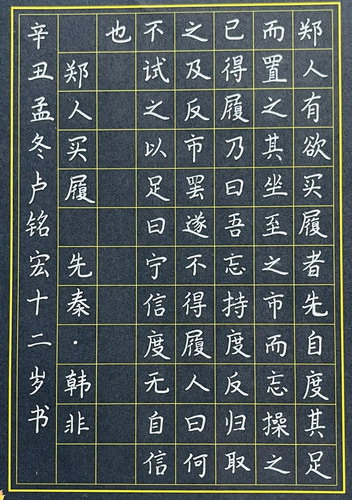 郑人有欲买履者先自度其足
而置之其坐至之市而忘操之
已得履乃曰吾忘持度反归取
之及反市罢遂不得履人曰何
不试之以足曰宁信度无自信
也
郑人买履 先秦·韩非
辛丑孟冬卢铭宏十二岁书